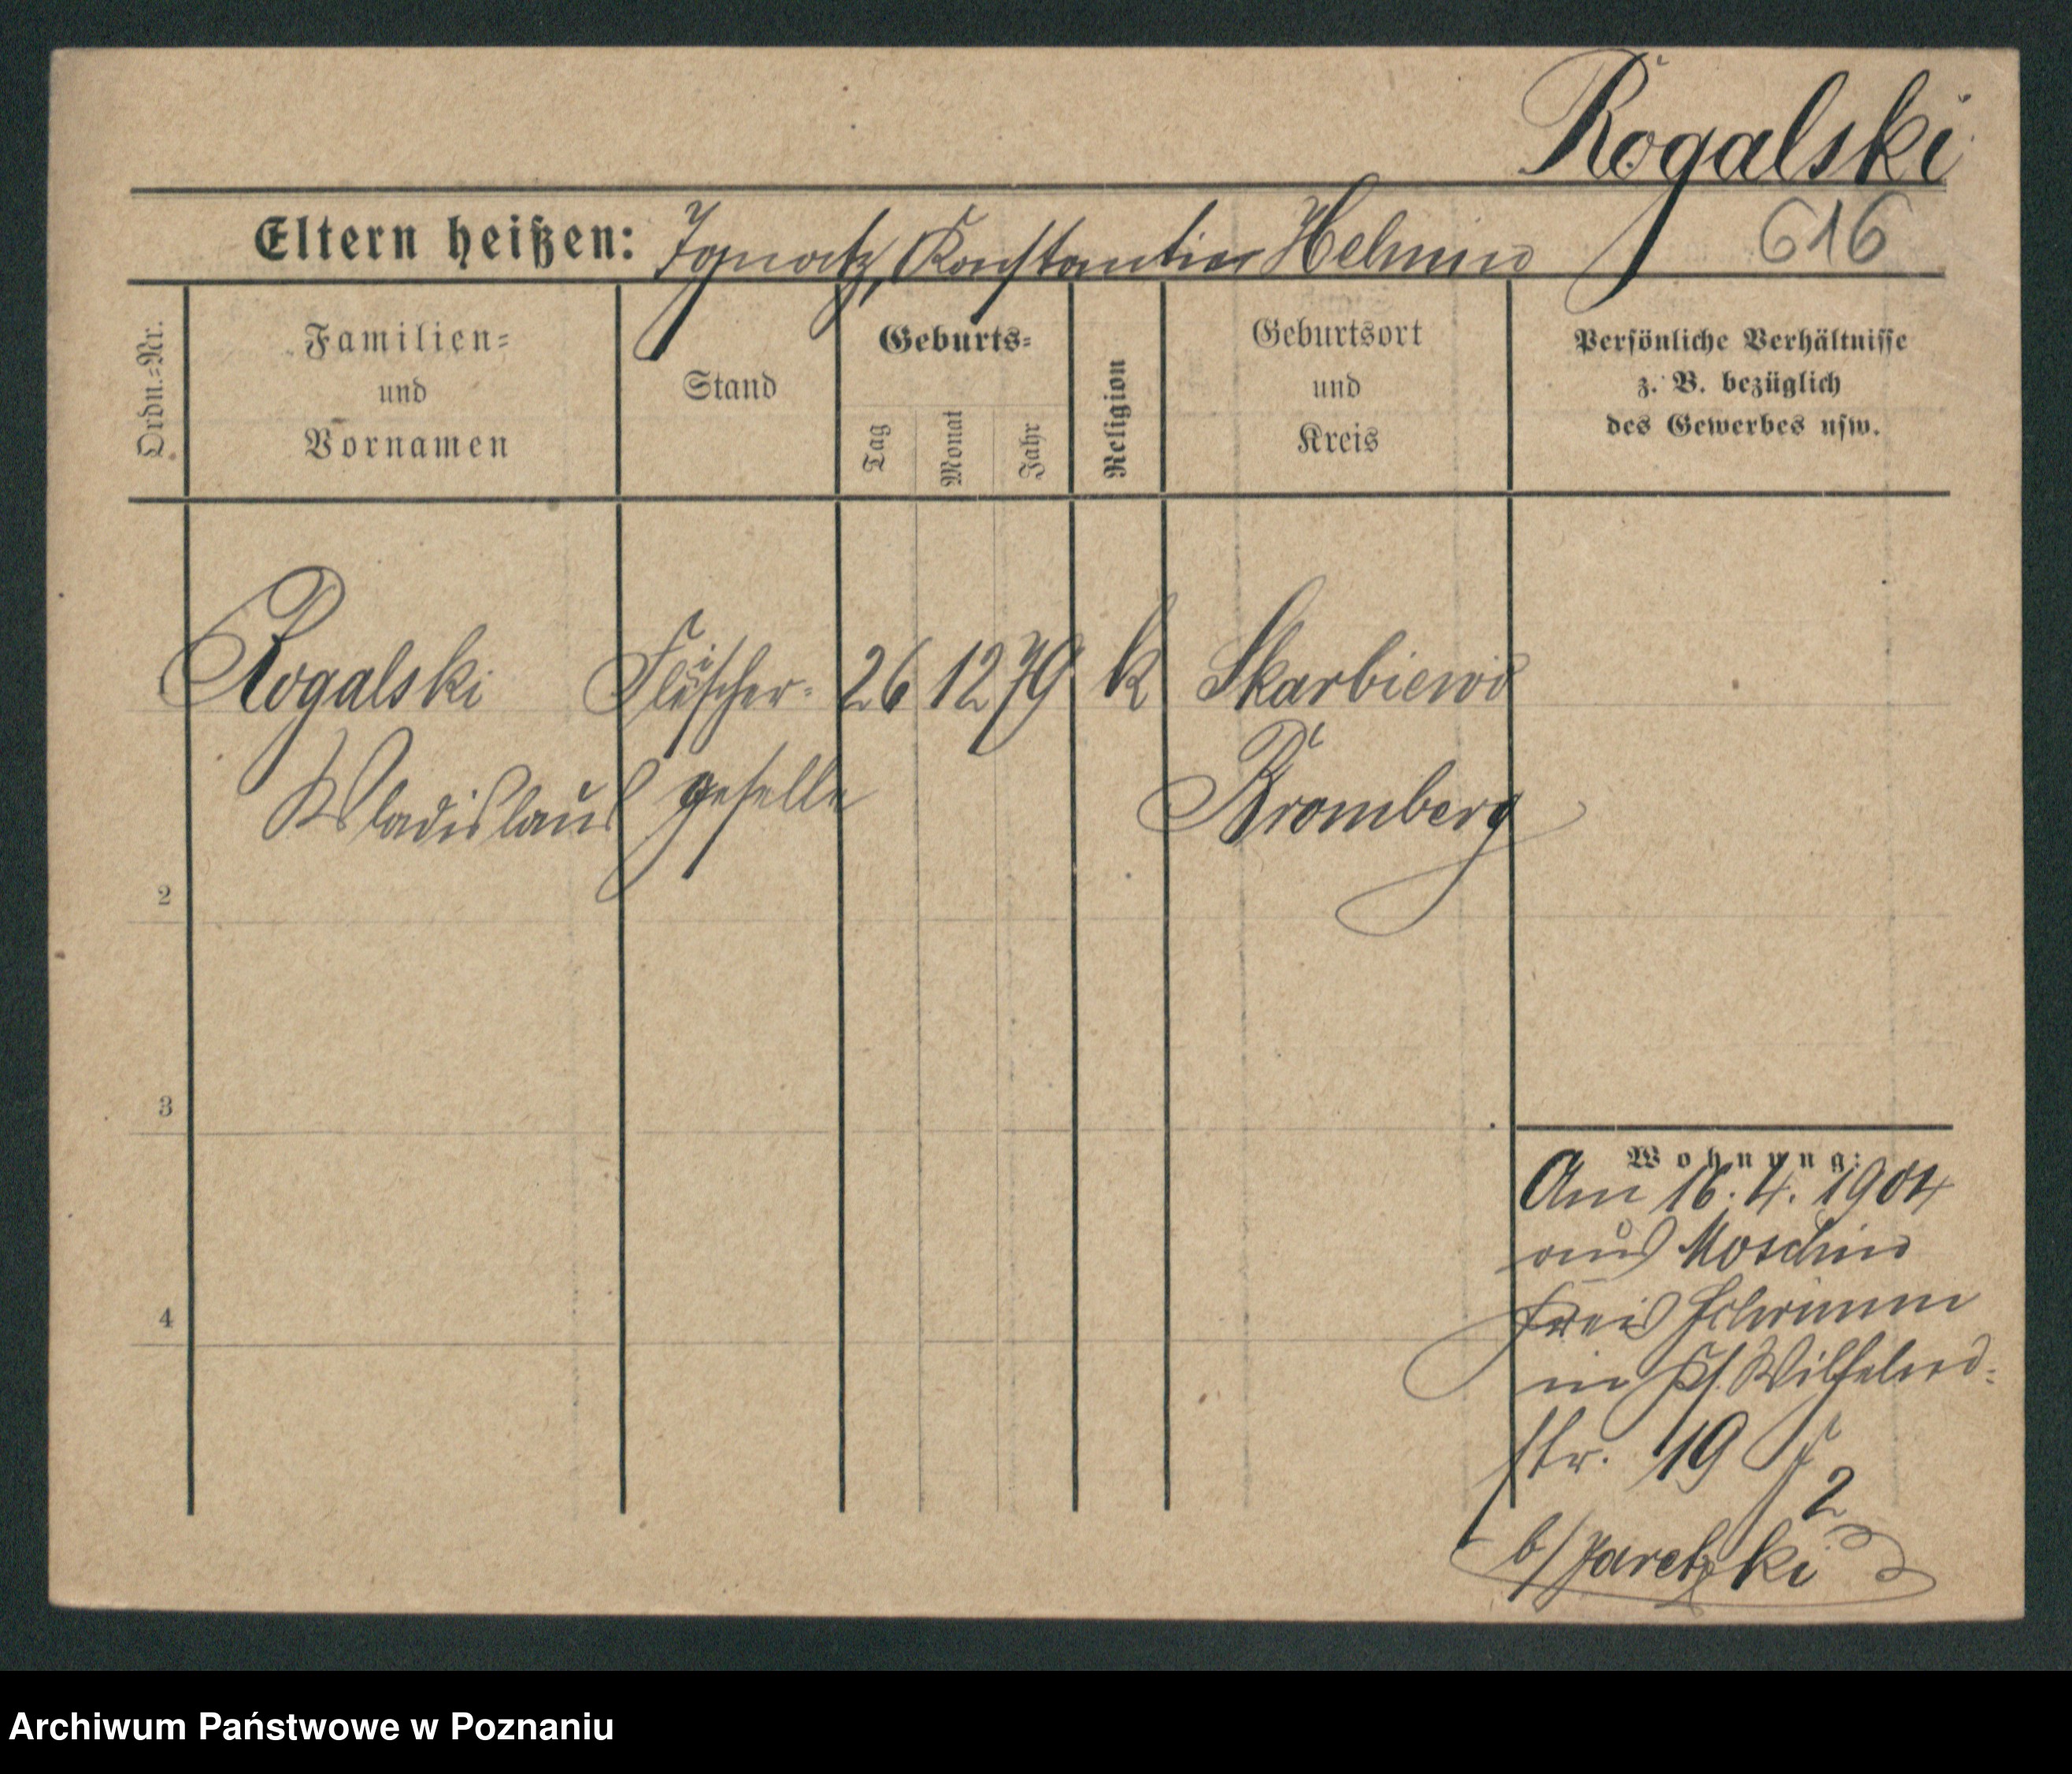 Rogalski
Eltern heißen: Ignatz, Konstantia Helmin
616
Ordn.-Nr.
Familien-
und
Vornamen
Stand
Geburts-
Tag
Monat
Jahr
Religion
Geburtsort
und
Kreis
Persönliche Verhältnisse
z. B. bezüglich
des Gewerbes usw.
Rogalski Fleischer- 26 12 79 k Skarbiewo
Wladislaus geselle Bromberg
2
3
4
Wohnung:
Am 16. 4. 1904
aus Moschin
Kreis Schrimm
in Wilhelms-
str. 19
2
b/Jaretzki
Archiwum Państwowe w Poznaniu